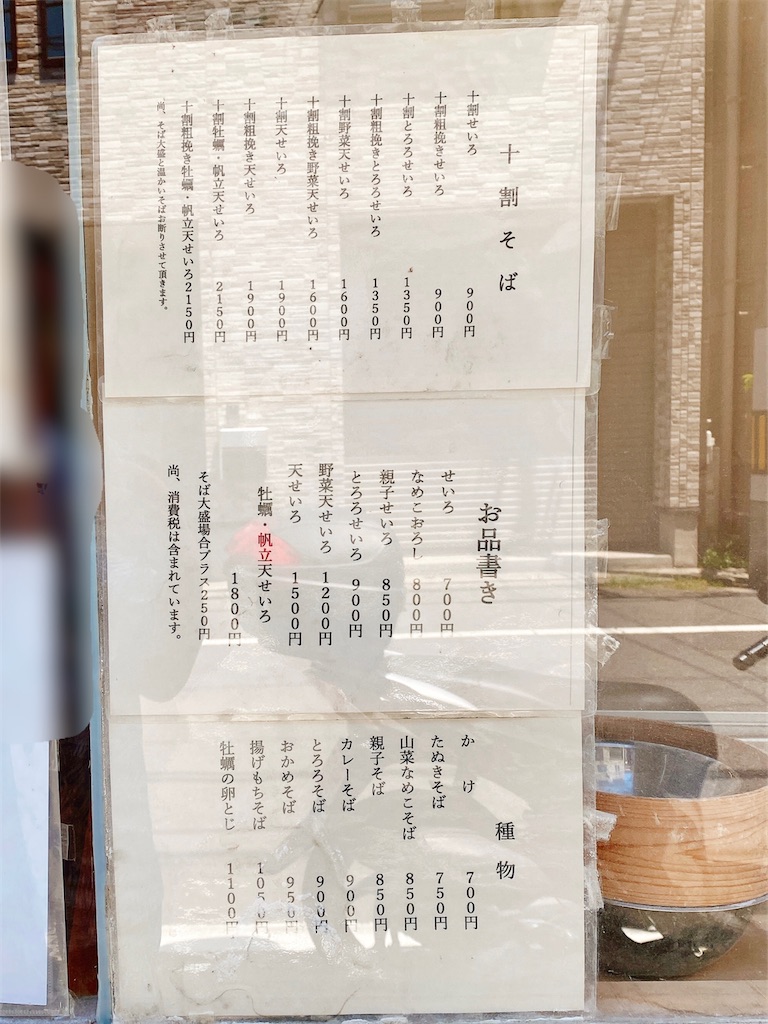 十割そば
十割せいろ 900円
十割粗挽きせいろ 900円
十割とろろせいろ 1350円
十割粗挽きとろろせいろ 1350円
十割野菜天せいろ 1600円
十割粗挽き野菜天せいろ 1600円
十割天せいろ 1900円
十割粗挽き天せいろ 1900円
十割牡蠣・帆立天せいろ 2150円
十割粗挽き牡蠣・帆立天せいろ2150円
尚、そば大盛と温かいそばお断りさせて頂きます。
お品書き
せいろ 700円
なめこおろし 800円
親子せいろ 850円
とろろせいろ 900円
野菜天せいろ 1200円
天せいろ 1500円
牡蠣・帆立天せいろ
1800円
そば大盛場合プラス250円
尚、消費税は含まれています。
種物
かけ 700円
たぬきそば 750円
山菜なめこそば 850円
親子そば 850円
カレーそば 900円
とろろそば 900円
おかめそば 950円
揚げもちそば 1050円
牡蠣の卵とじ 1100円